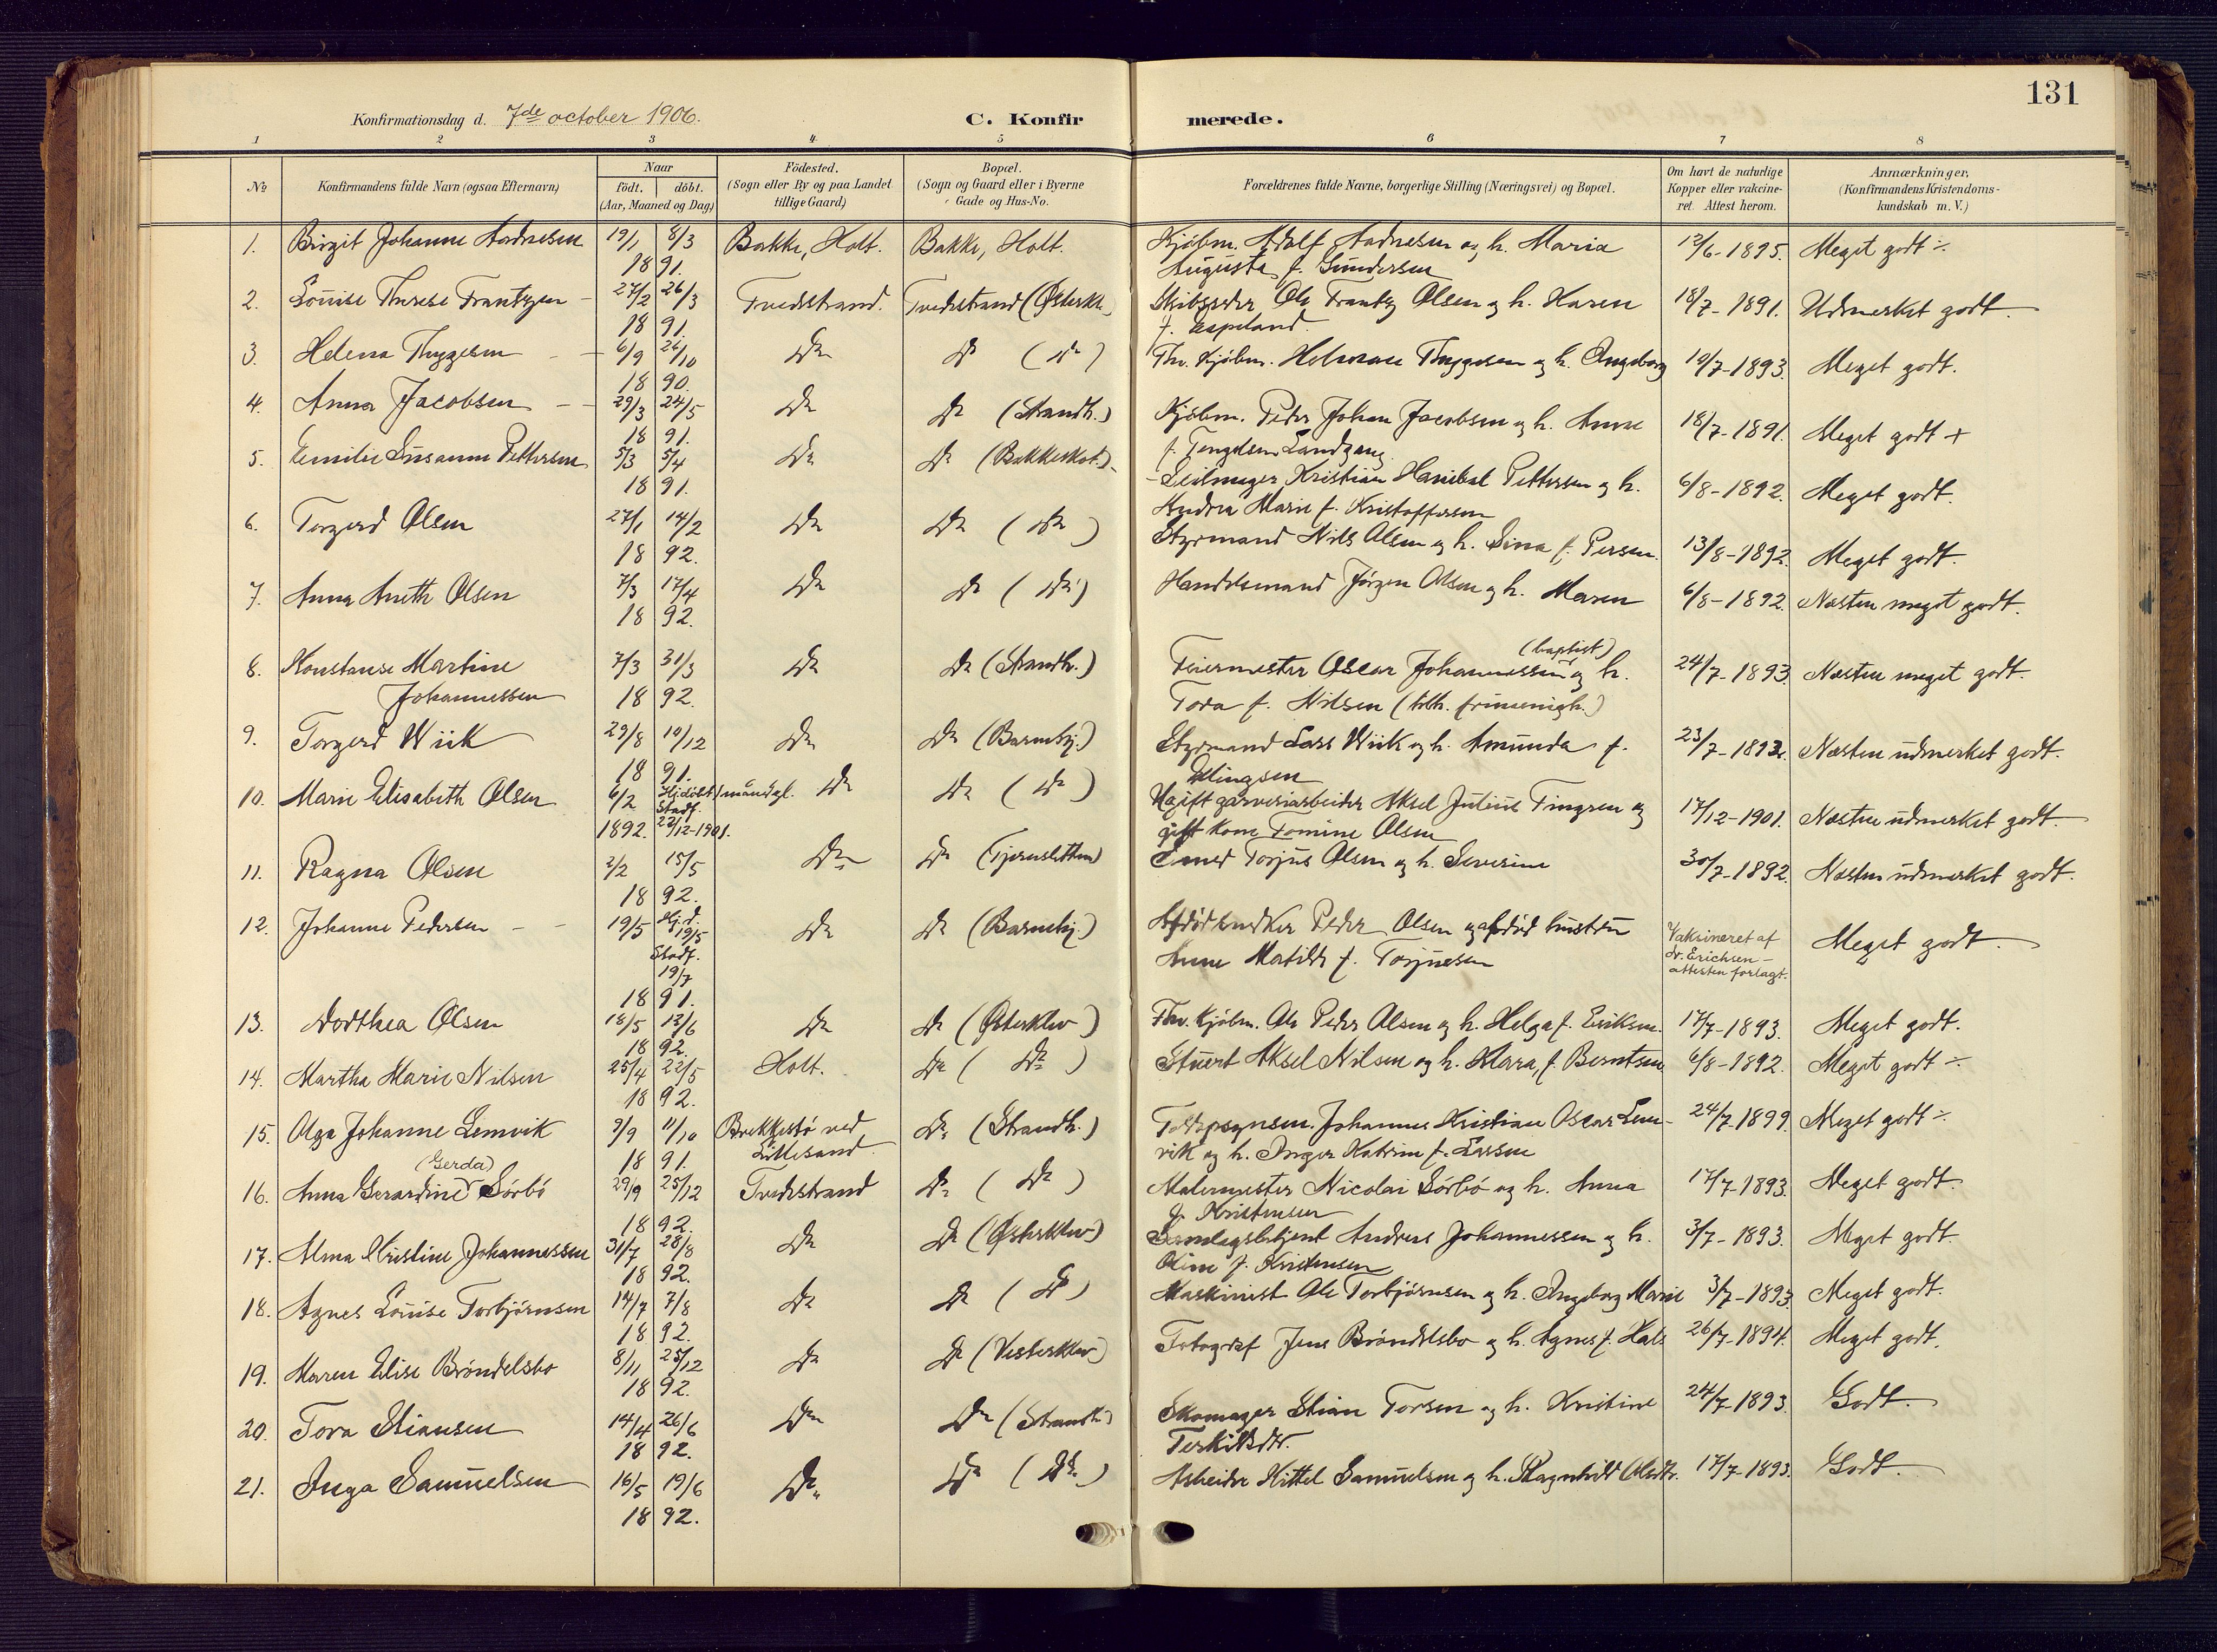 131
Konfirmationsdag d. 7de october 1906. C. Konfirmerede.
1 2 3 4 5 6 7 8
№ Konfirmandens fulde Navn (ogsaa Efternavn) Naar födt. döbt. (Aar, Maaned og Dag) Födested. (Sogn eller By og paa Landet tillige Gaard) Bopæl. (Sogn og Gaard eller i Byerne Gade og Hus-No. Forældrenes fulde Navne, borgerlige Stilling (Næringsvei) og Bopæl. Om havt de naturlige Kopper eller vakcineret. Attest herom. Anmærkninger. (Konfirmandens Kristendomskundskab m. V.)
1. Birgit Johanne Aadnesen 19/1 8/3 Bakke, Holt. Bakke, Holt. Kjöbm. Adolf Aadnesen og h. Maria 12/6-1895. Meget godt ÷
18 91. Augusta f. Gundersen
2. Louise Therese Frantzen 27/2 26/3 Tvedestrand. Tvedestrand (Østerkl.) Skibsreder Ole Frantz Olsen og h. Karen 18/7-1891. Udmerket godt.
18 91. f. Espeland.
3. Helena Thygesen 6/9 26/10 Do Do (Do) Fhv. Kjöbm. Helmone Thygesen og h. Ingeborg 10/7-1893. Meget godt.
18 90.
4. Anna Jacobsen 29/3 24/5 Do Do (Strandh.) Kjöbm. Peder Johan Jacobsen og h. Anne 18/7-1891. Meget godt +
18 91. f. Tengelsen Landgang
5. Emilie Susanne Pettersen 5/3 5/4 Do Do (Bakkeskot.) Seilmager Kristian Hanibal Pettersen og h. 6/8-1892. Meget godt.
18 91. Andrea Marie f. Kristoffersen
6. Torgerd Olsen 27/1 14/2 Do Do (Do) Styrmand Nils Olsen og h. Sina f. Persen. 13/8-1892. Meget godt.
18 92.
7. Anna Aneth Olsen 7/3 17/4 Do Do (Do) Handelsmand Jörgen Olsen og h. Maren 6/8-1892. Næsten meget godt.
18 92.
8. Konstanse Martine 7/3 31/3 Do Do (Strandh.) Feiermester Oscar Johannessen (baptist) og h. 24/7-1893. Næsten meget godt.
Johannessen 18 92. Tora f. Nilsen (tilh. frimenigh.)
9. Torgerd Wiik 29/8 10/12 Do Do (Barneby.) Styrmand Lars Wiik og h. Amunda f. 23/7-1892. Næsten udmerket godt.
18 91. Ellingsen
10. Marie Elisabeth Olsen 6/2 Hjdöbt/maanedgl. Do Do (Do) Ugift garveriarbeider Aksel Julius Tingsen og 17/12-1901. Næsten udmerket godt.
1892. Stadf. 22/12-1901. gift kone Tomine Olsen
11. Ragna Olsen 2/2 15/5 Do Do (Tjenesletten) Smed Torjus Olsen og h. Severine 30/7-1892. Næsten udmerket godt.
18 92.
12. Johanne Pedersen 19/5 Hjd. 19/5 Do Do (Barneby.) Afdöd snedker Peder Olsen og afdöd hustru Vakcineret af dr. Erichsen - attesten forlagt. Meget godt.
Stadf. 19/7 Anne Matilde f. Torjusen
18 91.
13. Dorthea Olsen 18/5 12/6 Do Do (Østerklev) Fhv. Kjöbm. Ole Peder Olsen og h. Helga f. Eriksen. 17/7-1893. Meget godt.
18 92.
14. Martha Marie Nilsen 25/4 22/5 Holt. Do (Do) Stuert Aksel Nilsen og h. Klara, f. Berntsen 6/8-1892. Meget godt ÷
18 92.
15. Olga Johanne Lemvik 9/9 11/10 Brekkestö ved Do (Strandh.) Toldopsynsm. Johannes Kristian Oscar Lem- 24/7-1899. Meget godt ÷
18 91. Lillesand. vik og h. Inger Katrine f. Larsen
16. Anna Gerardine (Gerda) Sörbö 29/9 25/12 Tvedestrand Do (Do) Malermester Nicolai Sörbö og h. Anna 17/7-1893. Meget godt.
18 92. f. Kristensen
17. Alma Kristine Johannessen 31/7 28/8 Do Do (Østerklev) Samlagsbetjent Andreas Johannessen og h. 3/7-1893. Meget godt.
18 92. Oline f. Kristensen
18. Agnes Louise Torbjörnsen 14/7 7/8 Do Do (Do) Maskinist Ole Torbjörnsen og h. Ingeborg Marie 3/7-1893. Meget godt.
18 92.
19. Maren Elise Bröndelsbo 8/11 25/12 Do Do (Vesterklev) Fotograf Jens Bröndelsbo og h. Agnes f. Hals 26/7-1894. Meget godt.
18 92.
20. Tora Stiansen 14/4 26/6 Do Do (Strandh.) Skomager Stian Torsen og h. Kristine 24/7-1893. Godt.
18 92. Terkilsdtr.
21. Inga Samuelsen 16/5 19/6 Do Do (Do) Arbeider Kittel Samuelsen og h. Ragnhild Olsdtr. 17/7-1893. Godt.
18 92.